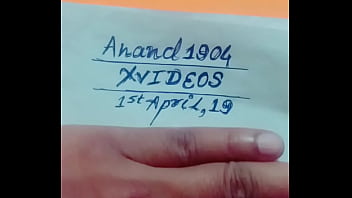 Anand1904
XVIDEOS
1st April, 19